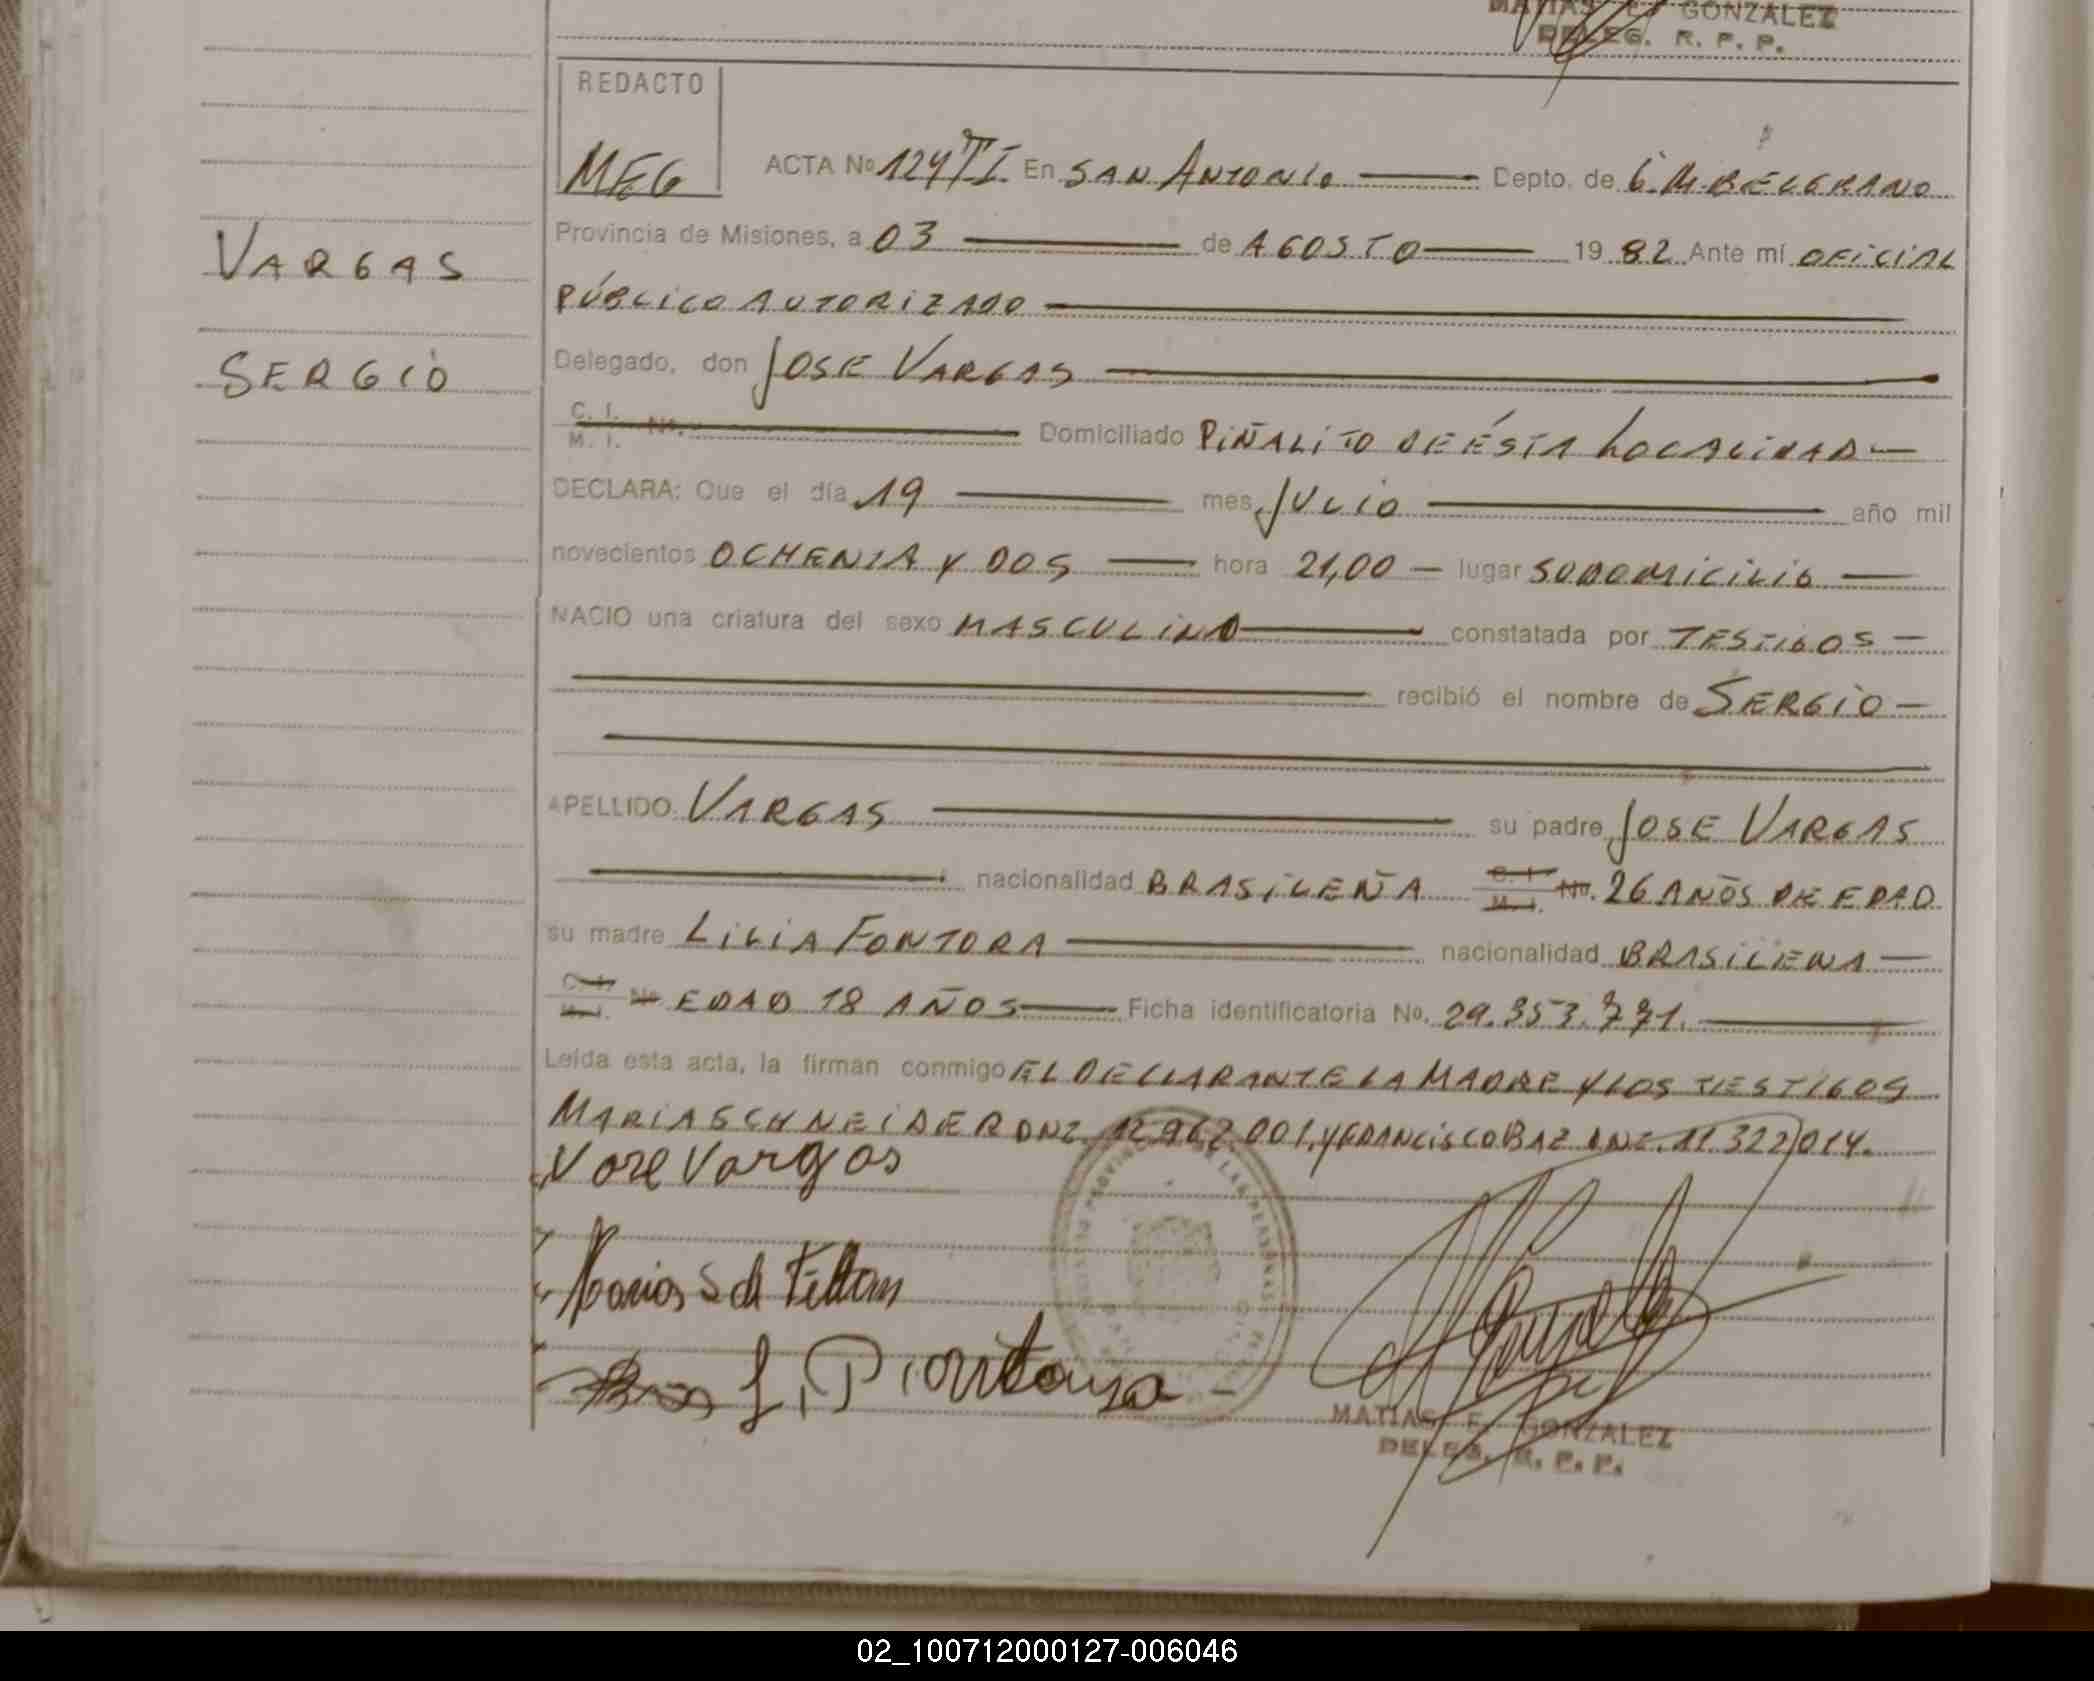 MATIAS E. GONZALEZ
DELEG. R. P. P.
REDACTO
MEG
ACTA No 124 TI. En SAN ANTONIO Depto. de G. M. BELGRANO
Provincia de Misiones, a 03 de AGOSTO 19 82 Ante mí OFICIAL
PÚBLICO AUTORIZADO
Delegado, don JOSE VARGAS
C. I.
M. I. No. Domiciliado PIÑALITO DE ÉSTA LOCALIDAD
DECLARA: Que el día 19 mes JULIO año mil
novecientos OCHENTA Y DOS hora 21,00 lugar SU DOMICILIO
NACIO una criatura del sexo MASCULINO constatada por TESTIGOS
recibió el nombre de SERGIO
APELLIDO VARGAS su padre JOSE VARGAS
nacionalidad BRASILEÑA C. I. M. I. No. 26 AÑOS DE EDAD
su madre LILIA FONTORA nacionalidad BRASILEÑA
C. I. M. I. No EDAD 18 AÑOS Ficha identificatoria No. 29.353.771.
Leída esta acta, la firman conmigo EL DECLARANTE LA MADRE Y LOS TESTIGOS
MARIA SCHNEIDER DNI. 12.962.001, Y FRANCISCO BAZ DNI. 11.322.014.
Vose Vargas
Maria S de
MATIAS E. GONZALEZ
DELEG. R. P. P.
VARGAS
SERGIO
02_100712000127-006046